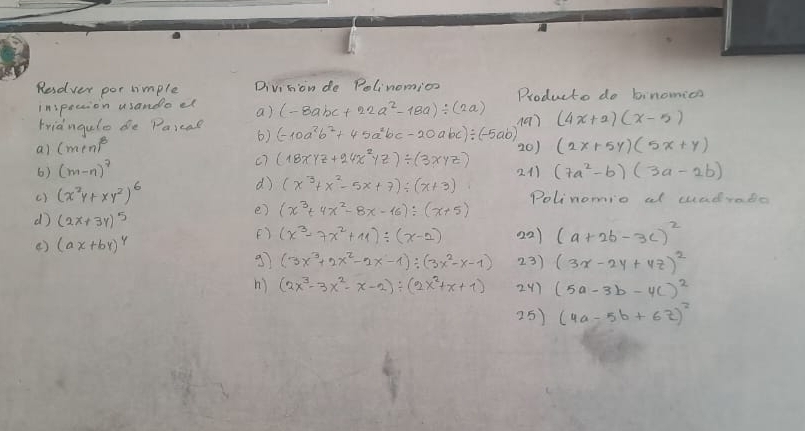 Resolver por simple
inspección usando el
triángulo de Pascal
a) (m+n)⁸
b) (m-n)⁷
c) (x²y+xy²)⁶
d) (2x+3y)⁵
e) (ax+by)⁴
División de Polinomios
a) (-8abc + 22a² - 18a) ÷ (2a)
b) (-10a²b² + 45a²bc - 20abc) ÷ (-5ab)
c) (18xyz + 24x²yz) ÷ (3xyz)
d) (x³ + x² - 5x + 7) ÷ (x+3)
e) (x³ + 4x² - 8x - 16) ÷ (x+5)
f) (x³ - 7x² + 11) ÷ (x-2)
g) (3x³ + 2x² - 2x - 1) ÷ (3x² - x - 1)
h) (2x³ - 3x² - x - 2) ÷ (2x² + x + 1)
Producto de binomios
19) (4x+2)(x-5)
20) (2x+5y)(5x+y)
21) (7a²-b)(3a-2b)
Polinomio al cuadrado
22) (a+2b-3c)²
23) (3x-2y+4z)²
24) (5a-3b-4c)²
25) (4a-5b+6z)²